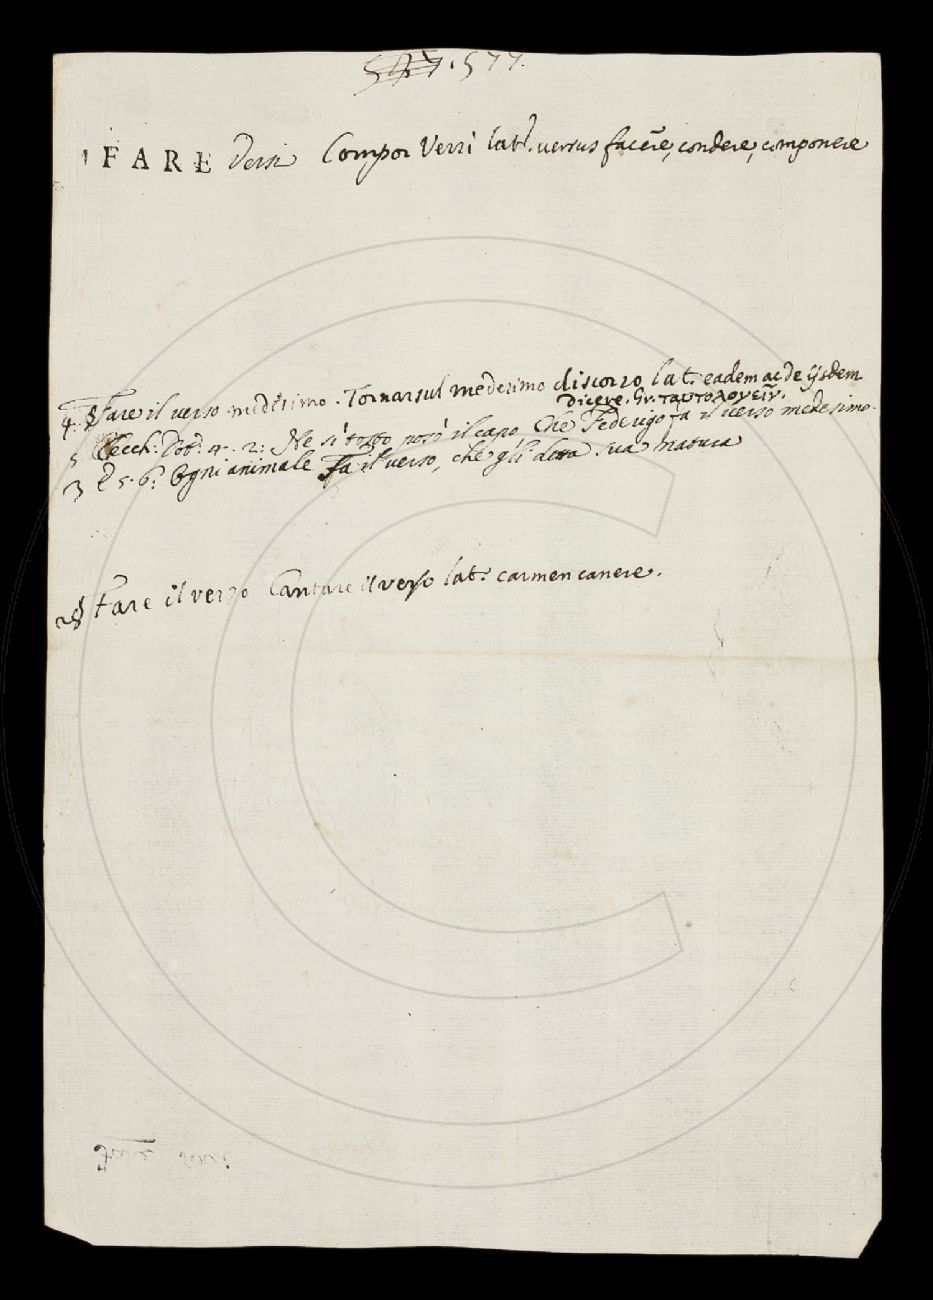 577. 577.
1 FARE Versi Compor Versi lat. versus facere, condere, componere
4. § Fare il verso medesimo. Tornar sul medesimo discorzo, lat. eadem ac de ijsdem
Dicere. Gr. ταυτολογεῖν.
5 Cecch. Dot. 4. 2: Ne si tosto posò il capo, Che Federigo fa il verso medesimo.
3 E 5. 6. Ogni animale Fa il verso, che gli detta sua natura
2 § Fare il verso Cantare il verso lat. carmen canere.
Fare versi